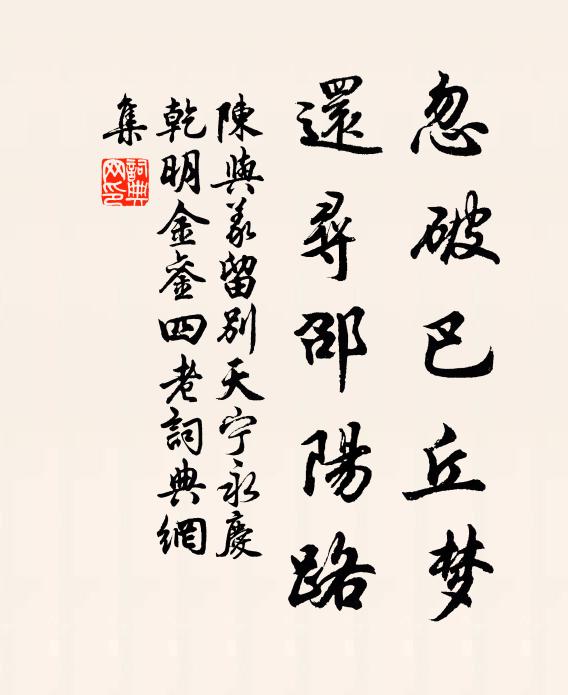 忽破巴丘梦
還尋邵陽路
陳與義留别天宁永慶
乾明金銮四老詞典網
集
詞典網印